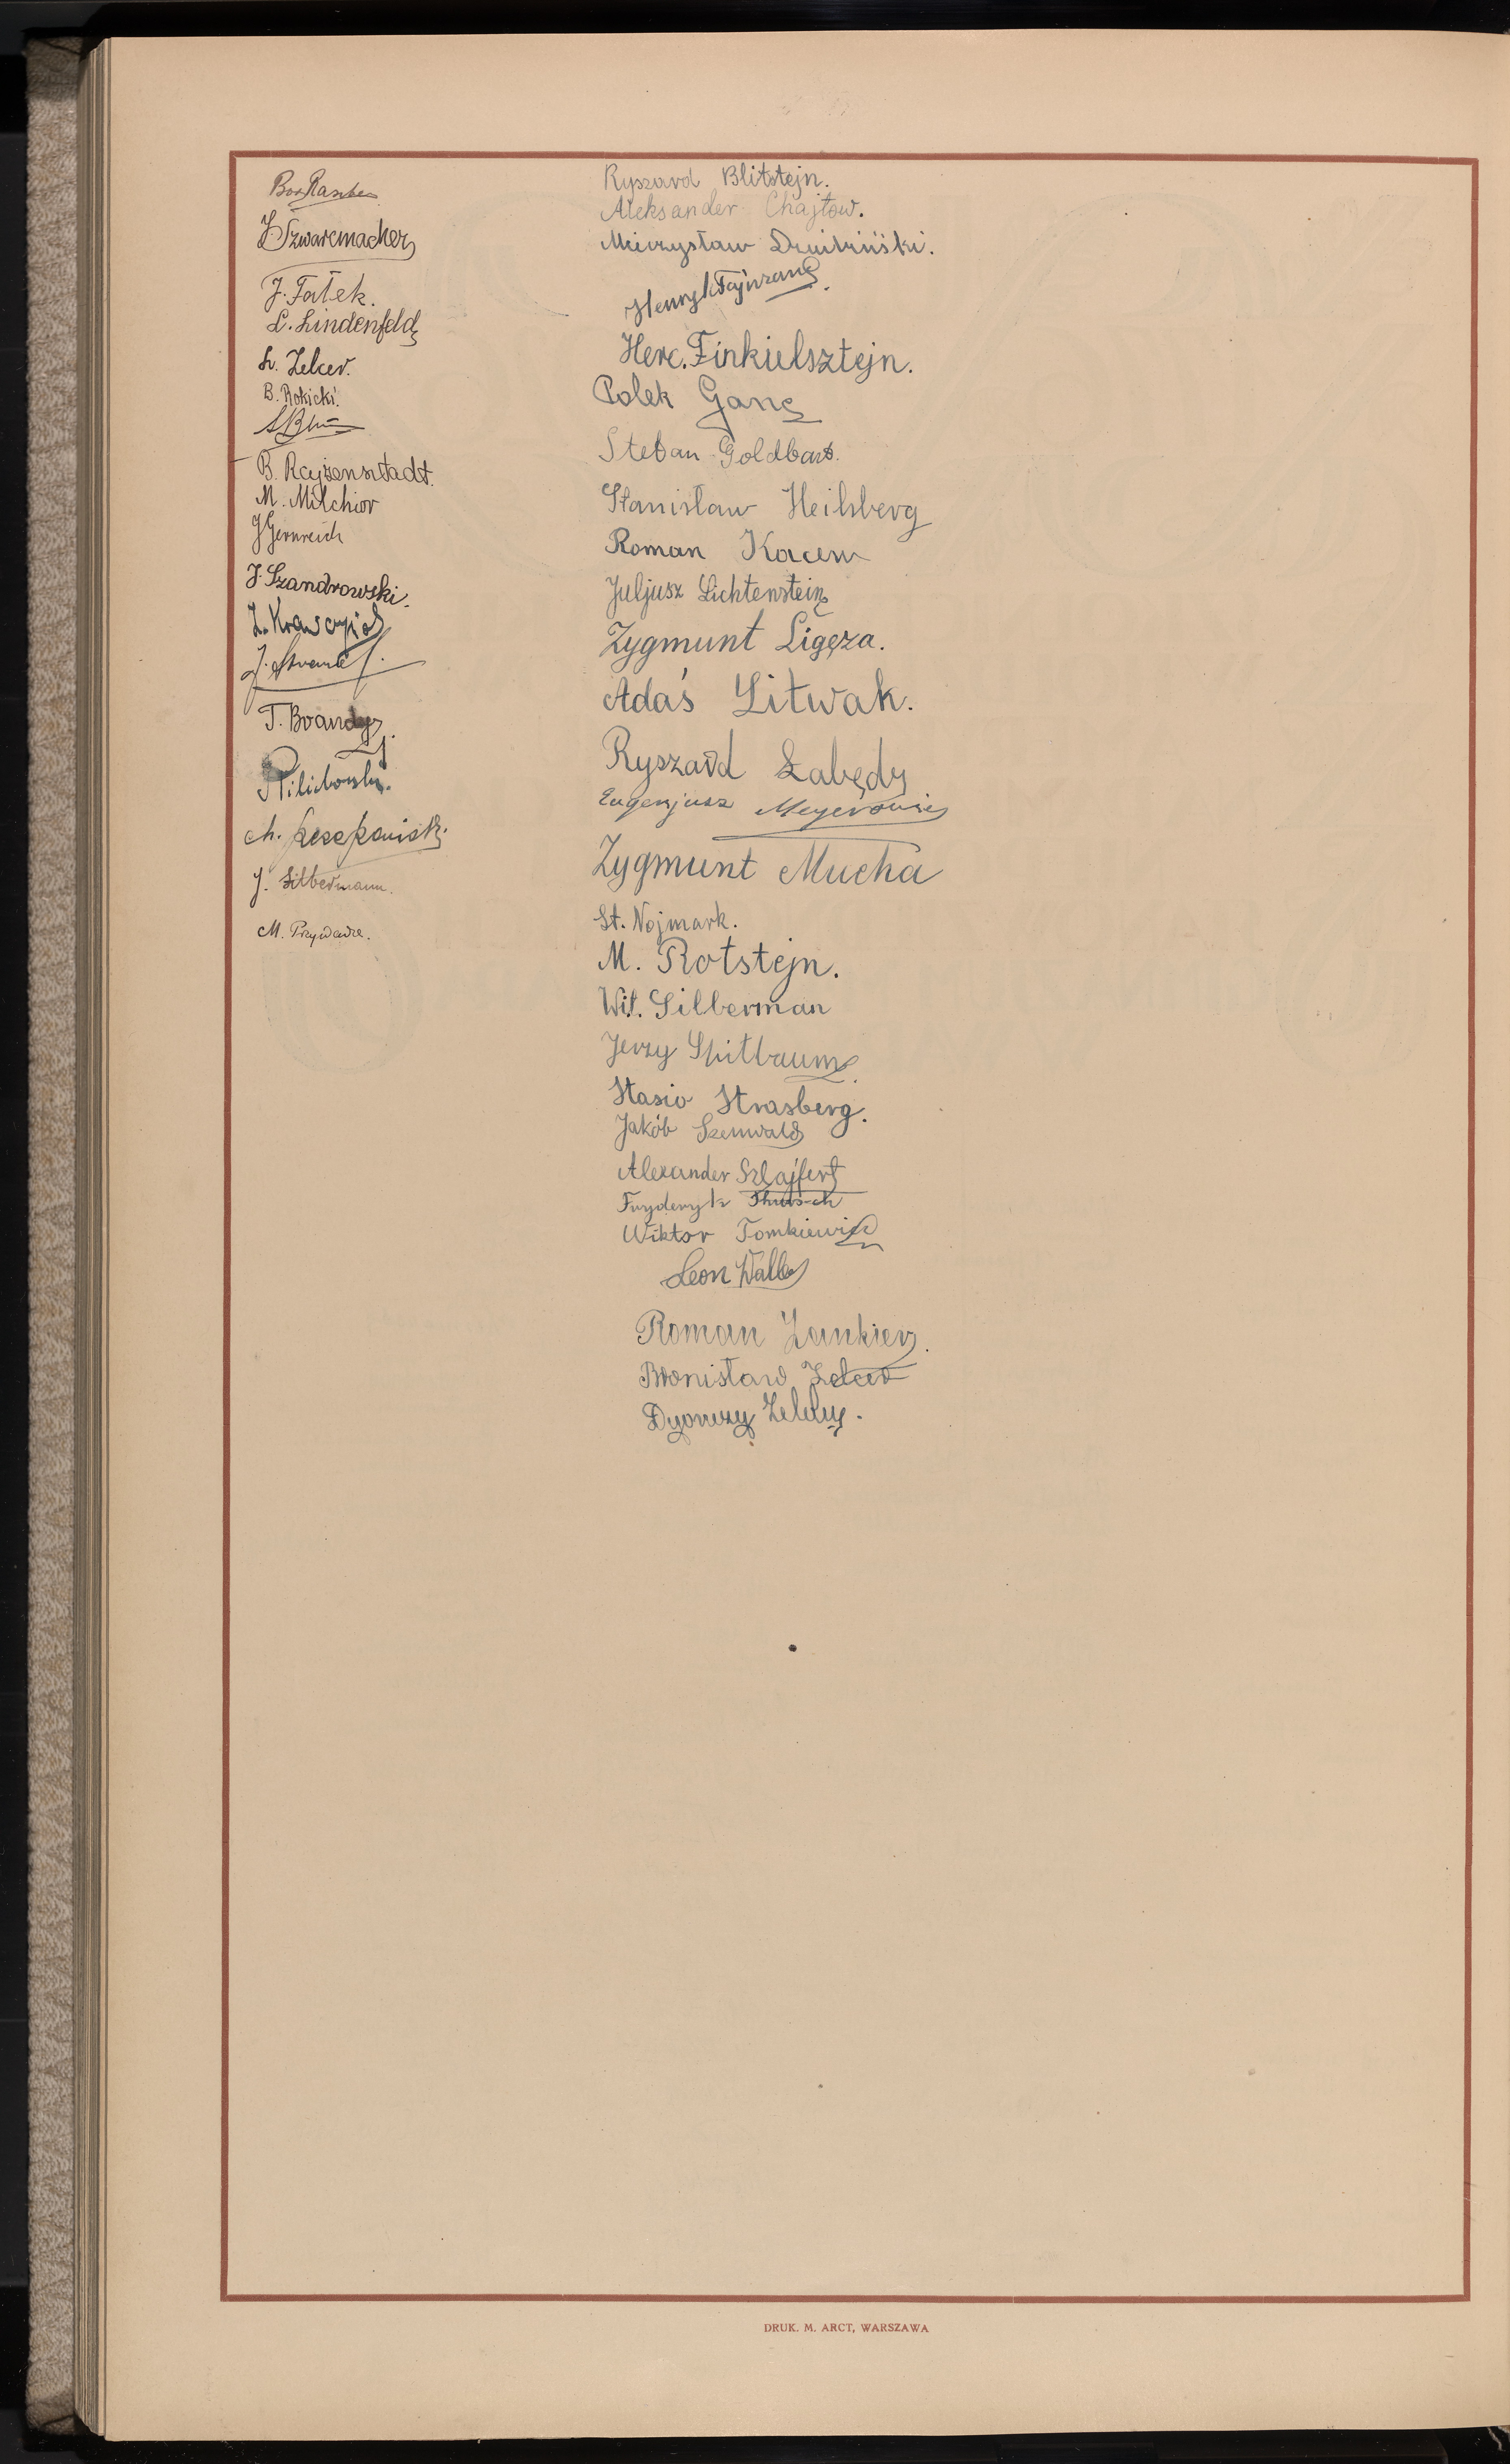 J. Szwarcmacher
J. Fałek.
L. Lindenfeld
L. Zelcer.
B. Rokicki.
B. Rajzensztadt.
M. Milchior
J Gernreich
J. Szandrowski.
T. Brandys.
J. Silbermann.
M. Prywarze.
Ryszard Blitstejn.
Aleksander Chajtow.
Mieczysław
Henryk Fajnzang.
Herc. Finkielsztejn.
Polek Ganc
Stefan Goldbart.
Stanisław Heilsberg
Roman Kacew
Juljusz Lichtenstein
Zygmunt Ligęza.
Adaś Litwak.
Ryszard Łabędź
Eugenjusz Meyerowicz
Zygmunt Mucha
St. Nojmark.
M. Rotstejn.
Wil. Silberman
Jerzy Spitbaum.
Stasio Strasberg.
Jakób Szenwald
Alexander Szlajfert
Fryderyk
Wiktor Tomkiewicz
Leon Waller
Roman Zankier.
Bronisław Zelcer
Zeleny.
DRUK. M. ARCT, WARSZAWA